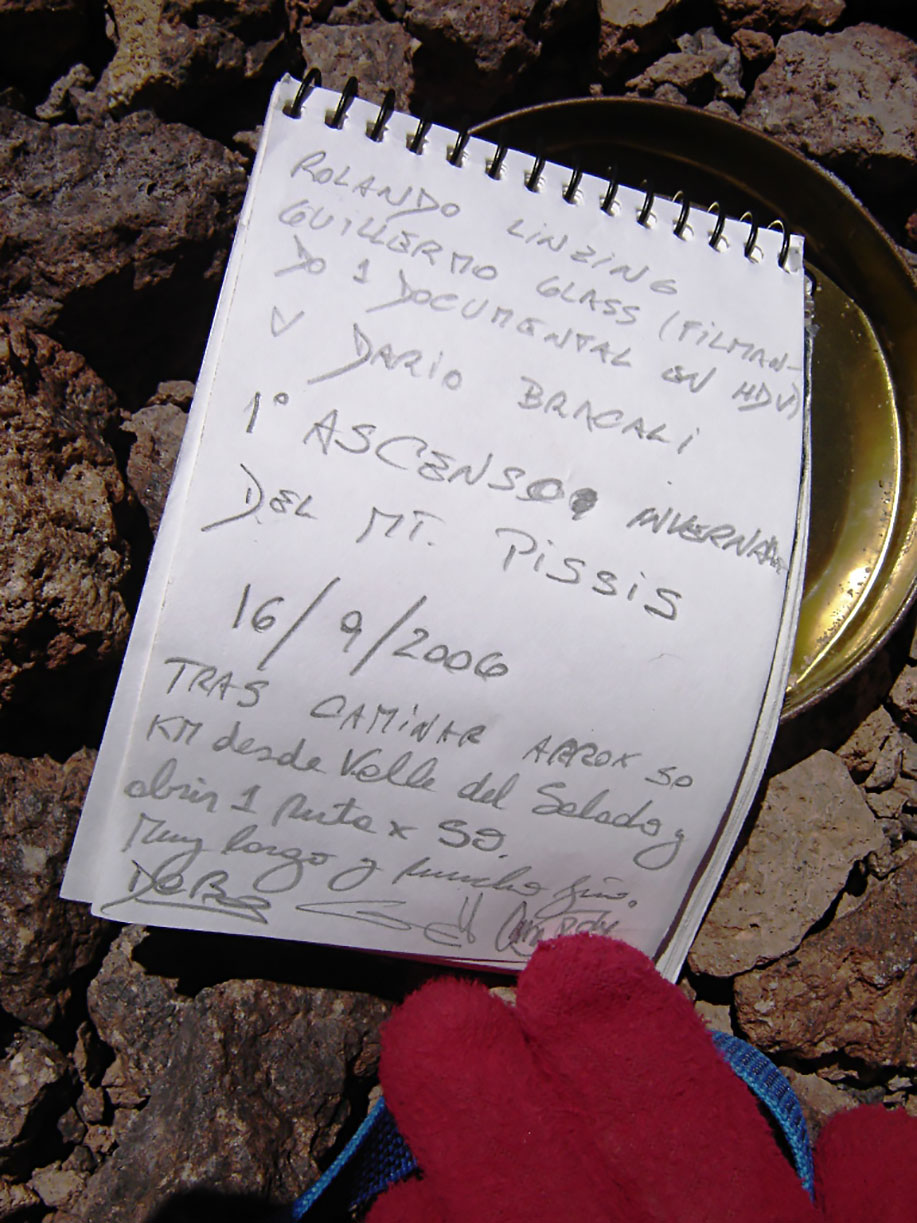 ROLANDO LINZING
GUILLERMO GLASS (FILMAN-
DO 1 DOCUMENTAL EN HDV)
Y DARIO BRACALI
1° ASCENSO INVERNAL
DEL MT. PISSIS
16/9/2006
TRAS CAMINAR APROX 50
KM desde Valle del Salado y
abrir 1 Ruta x SO.
Muy largo y mucho frío.